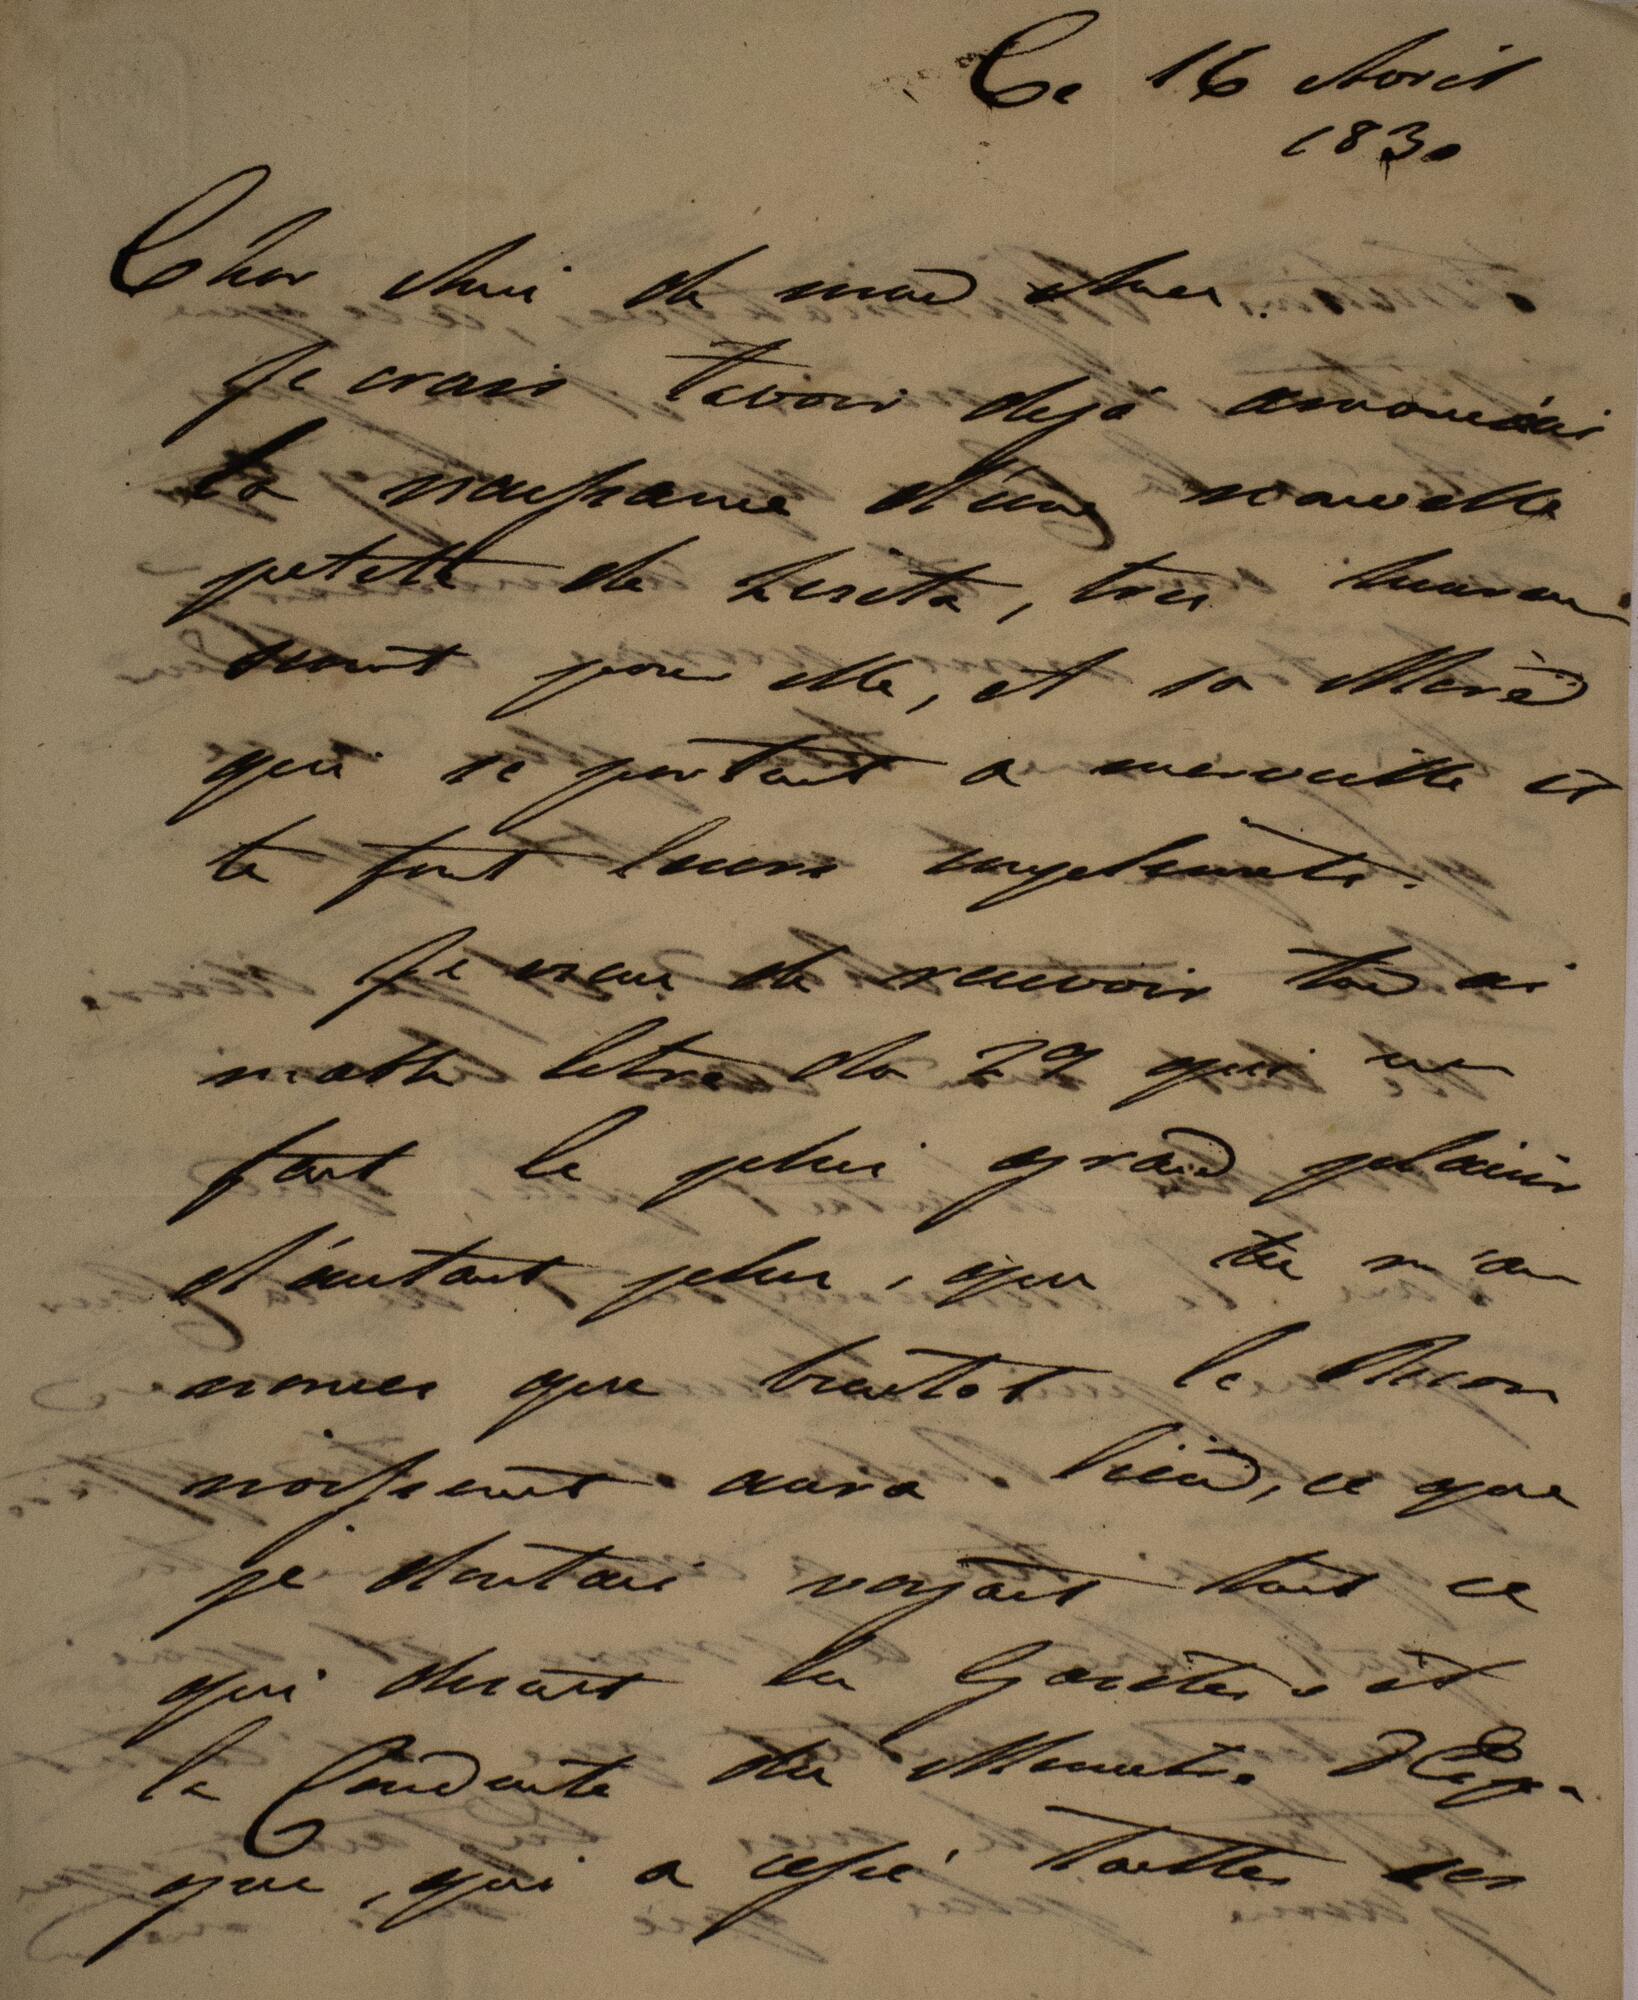 Ce 16 Avril
1830
Cher Ami de mon Ame.
Je crois t'avoir dejá
la naissance d'une nouvelle
petite de Lisita, tres heureu
semt pour elle, et sa Mere
qui se portent a merveille et
te font leurs complimets.
Je viens de recevoir ton ai
mable letre du 29 qui me
fait le plus grand plaisir
d'autant plus, que tu m'an
nonces que bientot le Acou
chissemt aura lieu, ce que
je doutais voyant tout ce
qui disait la Gazette et
la Conduite du Ministre
que, qui a cessé toutes ses